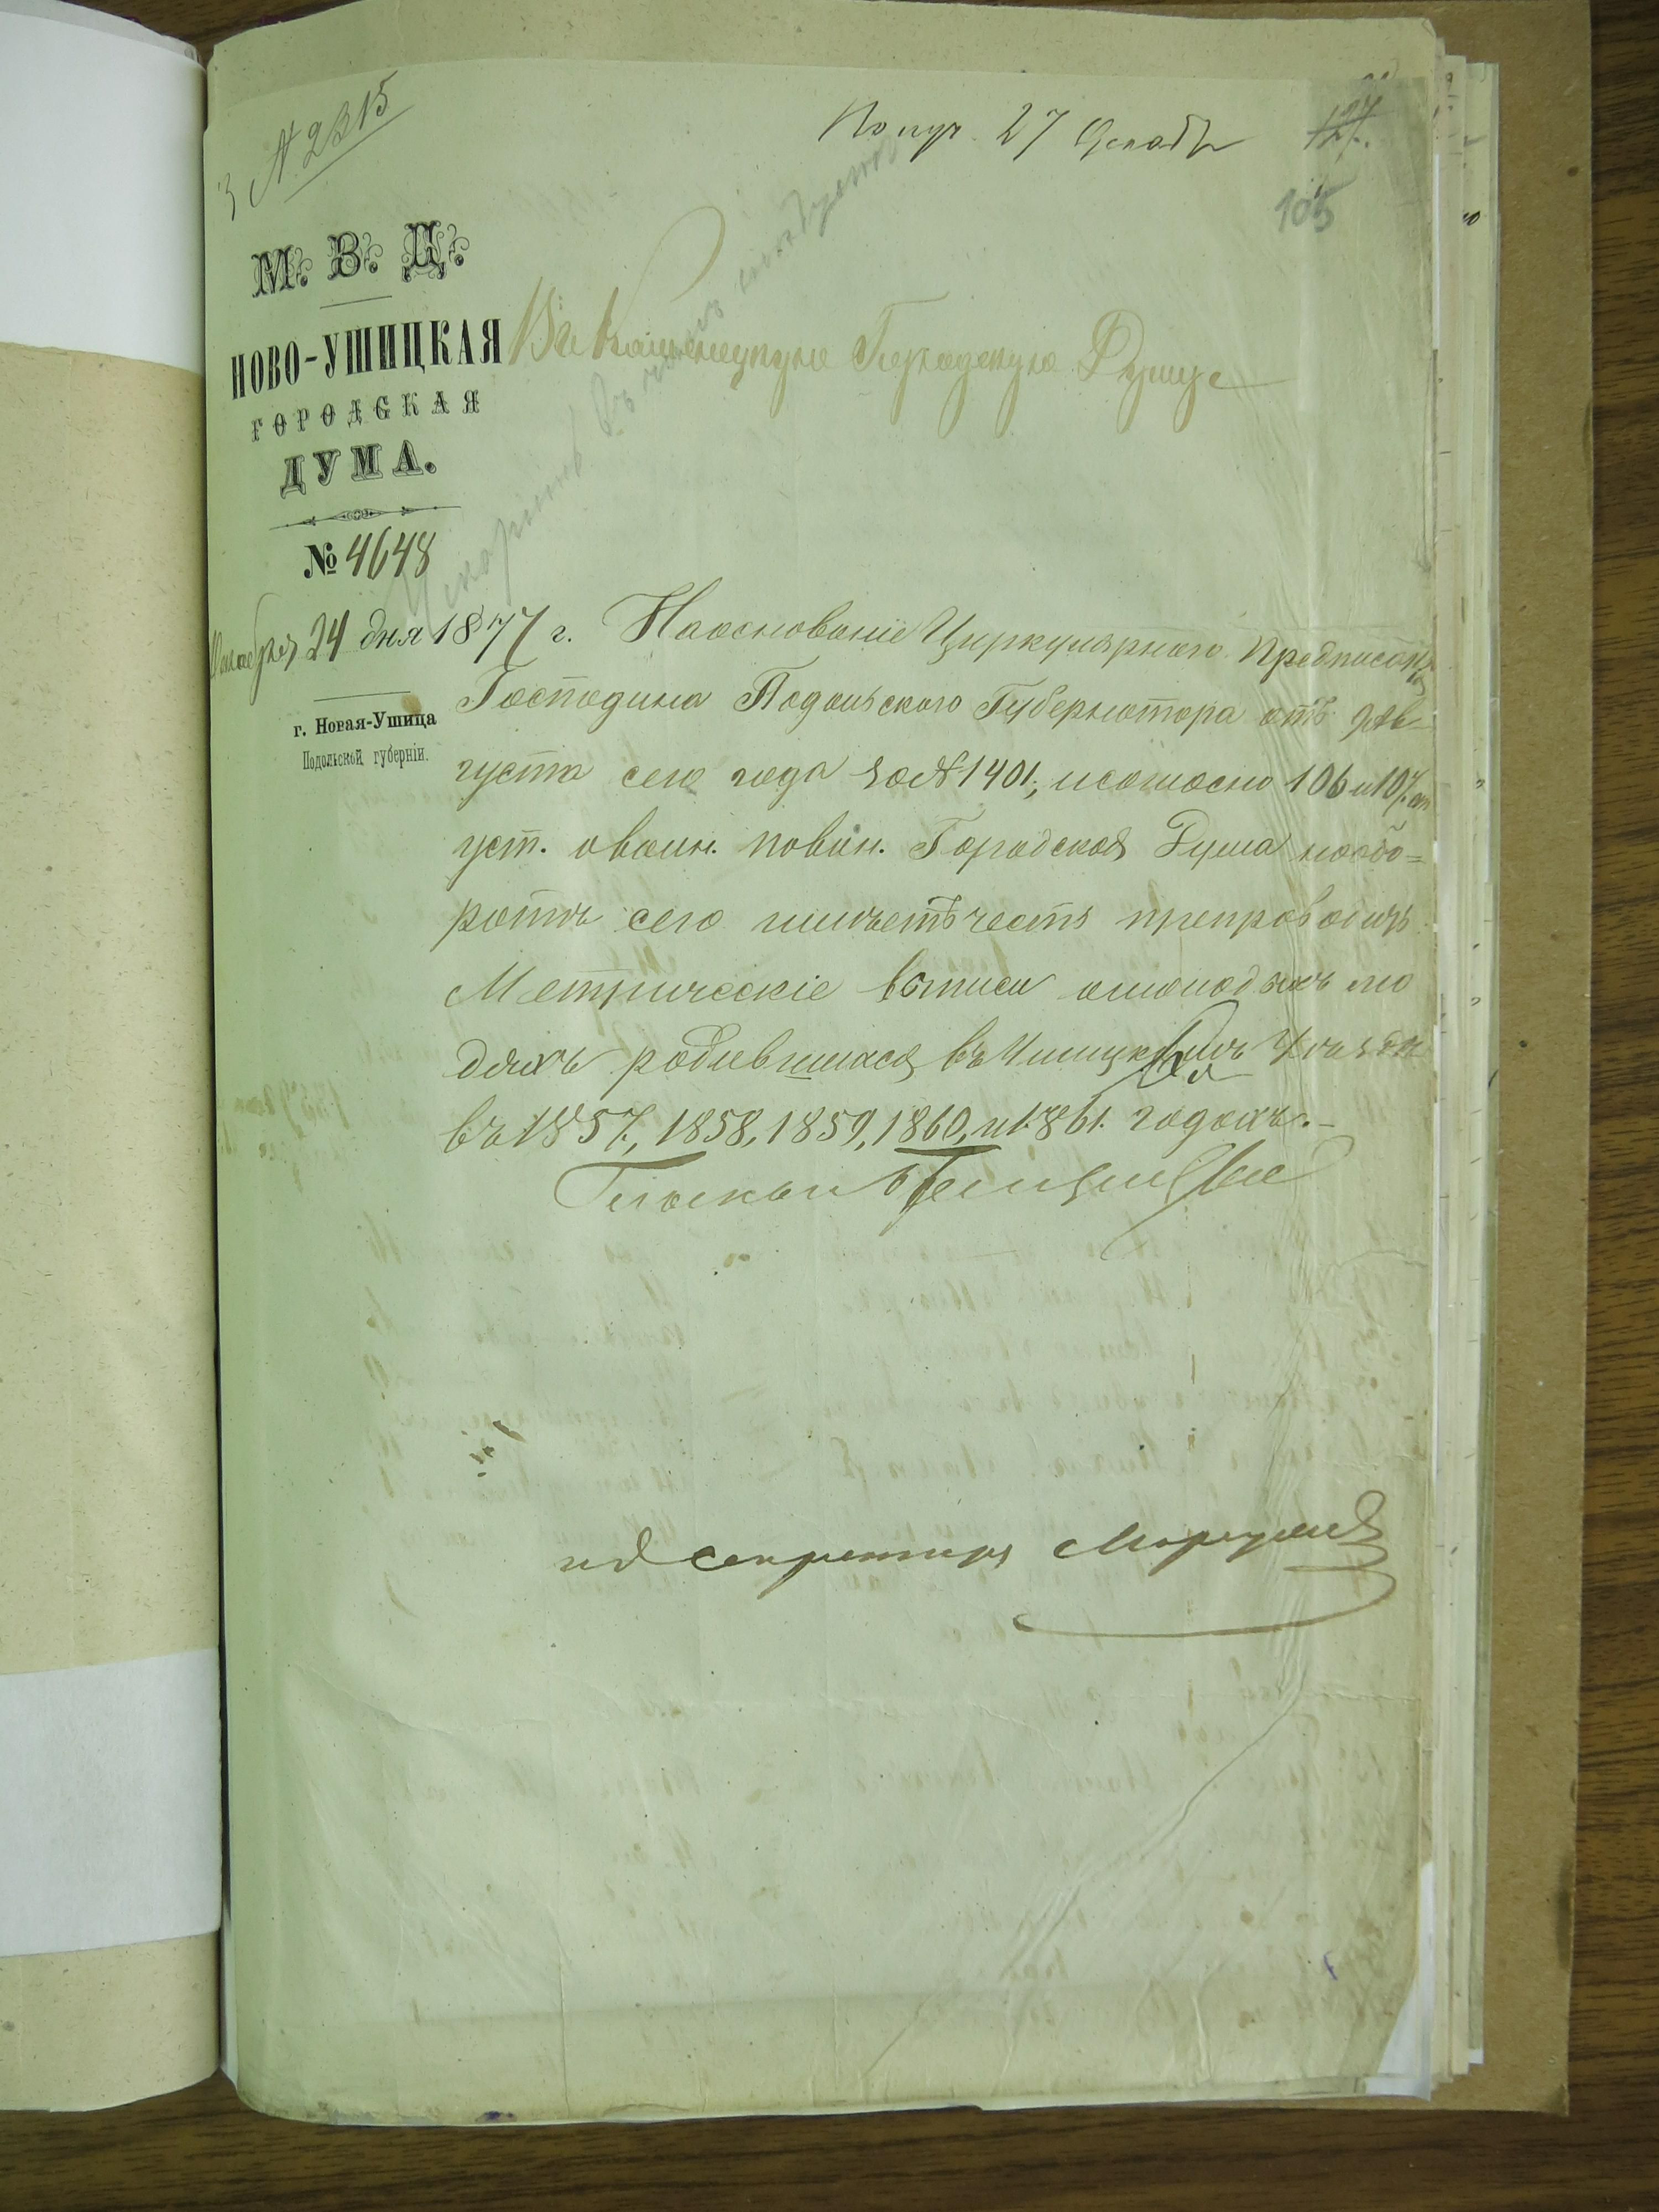 № 2315
Получ. 27 Декабр
127.
105
М. В. Д.
НОВО-УШИЦКАЯ
ГОРОДСКАЯ
ДУМА.
№ 4648
Декабря 24 дня 1877 г.
г. Новая-Ушица
Подольской губерніи.
Въ Каменецкую Городскую Думу
На основаніе Циркулярнаго Предписанія
Господина Подольскаго Губернатора отъ 9 Ав-
густа сего года за № 1401, и согласно 106 и 107. ст
уст. о воин. повин. Городская Дума на обо=
ротъ сего имѣетъ честь препроводить
Метрическіе выписи о молодыхъ лю
дяхъ родившихся въ Ушицкомъ Уѣздѣ
въ 1857, 1858, 1859, 1860, и 1861. годахъ.-
Гласный
и д Секретаря